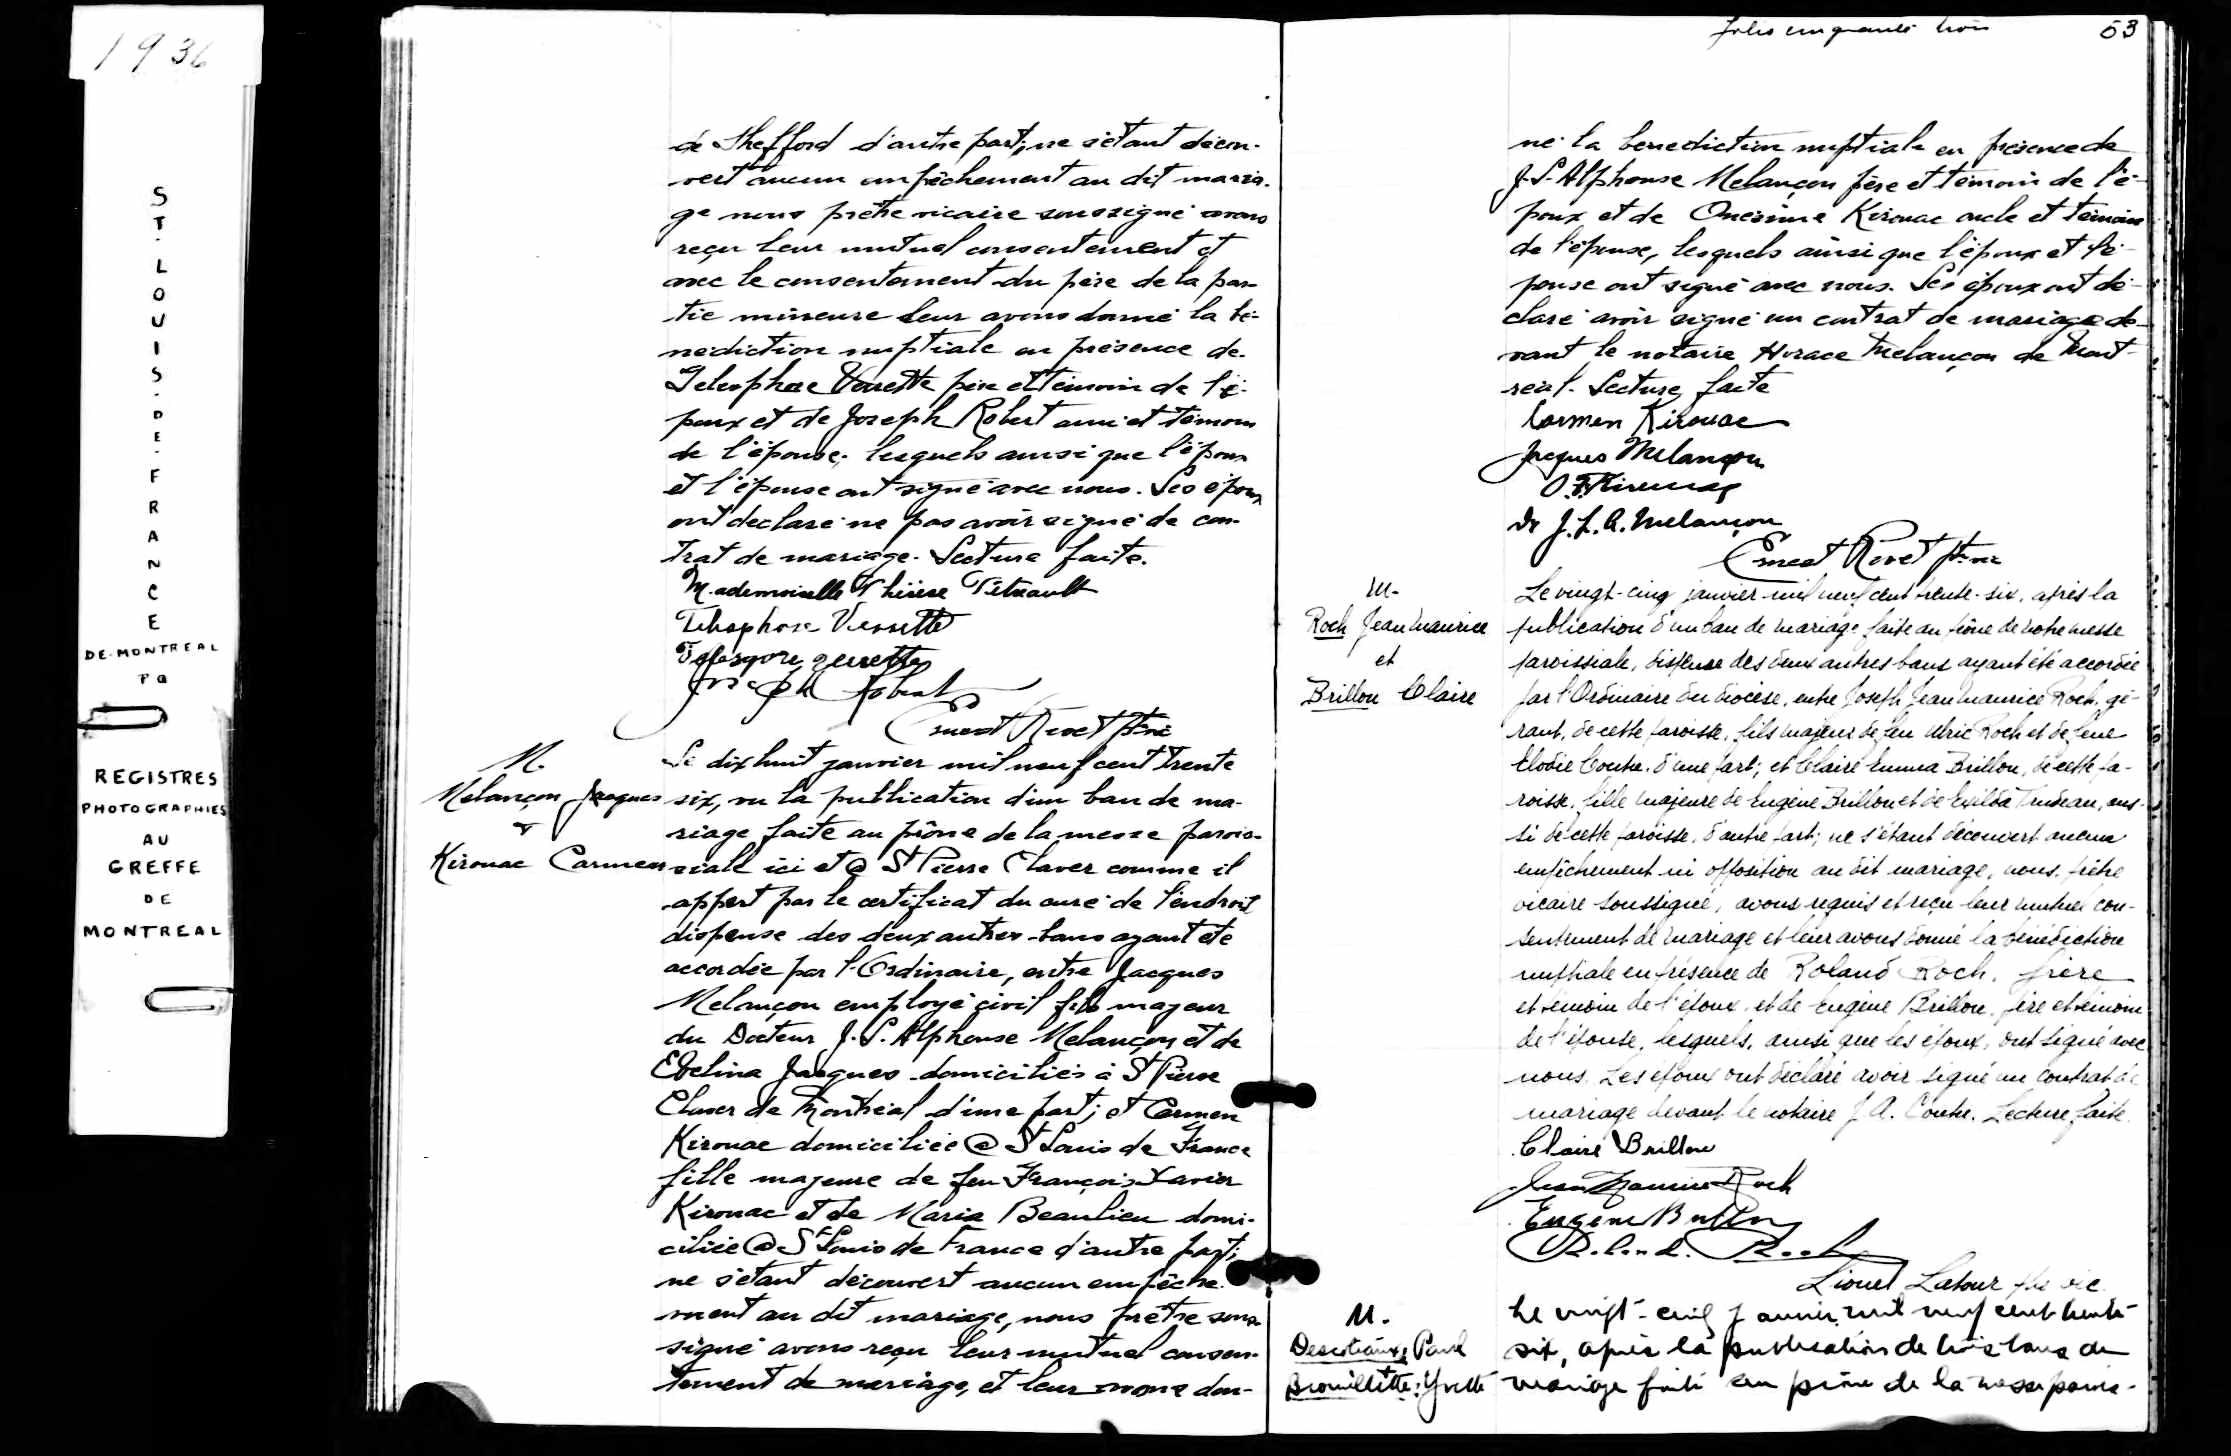 1936
ST. LOUIS-DE-FRANCE
DE-MONTREAL
PQ
REGISTRES
PHOTOGRAPHIES
AU
GREFFE
DE
MONTREAL
de Shefford d'autre part; ne s'étant décou-
vert aucun empêchement au dit maria-
ge nous prêtre vicaire soussigné avons
reçu leur mutuel consentement et
avec le consentement du père de la par-
tie mineure leur avons donné la bé-
nediction nuptiale en présence de
Telesphore Verrette père et témoin de l'é-
poux et de Joseph Robert ami et témoin
de l'épouse; lesquels ainsi que l'époux
et l'épouse ont signé avec nous. Les époux
ont déclaré ne pas avoir signé de con-
trat de mariage. Lecture faite.
Mademoiselle Thérèse Tétrault
Télesphore Verrette
Joseph Robert
Ernest Rivet ptre vic
M.
Melançon Jacques
&
Kirouac Carmen
Le dix huit janvier mil neuf cent trente
six, vu la publication d'un ban de ma-
riage faite au prône de la messe parois-
siale ici et @ St Pierre Claver comme il
appert par le certificat du curé de l'endroit
dispense des deux autres bans ayant été
accordée par l'Ordinaire, entre Jacques
Melançon employé civil fils majeur
du Docteur J.L. Alphonse Melançon et de
Evelina Jacques domiciliés à St Pierre
Claver de Montréal d'une part; et Carmen
Kirouac domiciliée @ St Louis de France
fille majeure de feu François Xavier
Kirouac et de Maria Beaulieu domi-
ciliée @ St Louis de France d'autre part;
ne s'étant découvert aucun empêche-
ment au dit mariage, nous prêtre sous-
signé avons reçu leur mutuel consen-
tement de mariage, et leur avons don-
folio cinquante trois 53
né la benediction nuptiale en présence de
J.L. Alphonse Melançon père et témoin de l'é-
poux et de Onésime Kirouac oncle et témoin
de l'épouse, lesquels ainsi que l'époux et l'é-
pouse ont signé avec nous. Les époux ont dé-
claré avoir signé un contrat de mariage de-
vant le notaire Horace Melançon de Mont-
réal. Lecture faite
Carmen Kirouac
Jacques Melançon
Kirouac
Dr J.L.A. Melançon
Ernest Rivet ptre vic
M.
Roch Jean Maurice
et
Brillon Claire
Le vingt-cinq janvier mil neuf cent trente-six, après la
publication d'un ban de mariage faite au prône de notre messe
paroissiale, dispense des deux autres bans ayant été accordée
par l'Ordinaire du diocèse, entre Joseph Jean Maurice Roch, gé-
rant, de cette paroisse, fils majeur de feu Ulric Roch et de feue
Elodie Coutu, d'une part; et Claire Emma Brillon, de cette pa-
roisse, fille majeure de Eugène Brillon et de Exilda Trudeau, aus-
si de cette paroisse, d'autre part; ne s'étant découvert aucun
empêchement ni opposition au dit mariage, nous, prêtre
vicaire soussigné, avons requis et reçu leur mutuel con-
sentement de mariage et leur avons donné la bénédiction
nuptiale en présence de Roland Roch, frère
et témoin de l'époux, et de Eugène Brillon, père et témoin
de l'épouse, lesquels, ainsi que les époux, ont signé avec
nous. Les époux ont déclaré avoir signé un contrat de
mariage devant le notaire J. A. Coutu. Lecture faite.
Claire Brillon
Jean Maurice Roch
Eugène Brillon
Roland Roch
Lionel Latour ptre vic.
M.
Paul
Brouillette: Yvette
Le vingt-cinq janvier, mil neuf cent trente-
six, après la publication de trois bans de
mariage faite au prône de la messe parois-